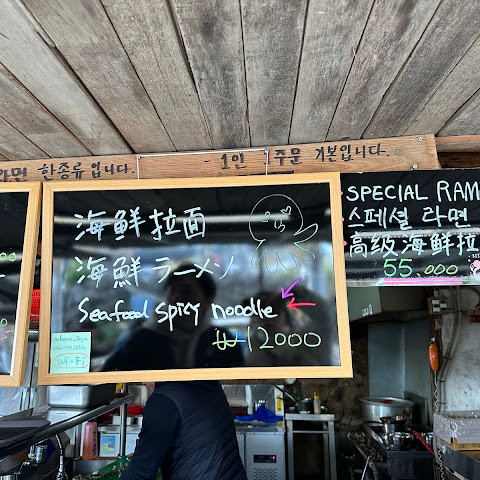 라면 한종류입니다.
- 1인 주문 기본입니다.
海鮮拉面
海鮮 ラーメン
Seafood spicy noodle
₩12000
Wi-Fi
SPECIAL RAM
스페셜 라면
高級海鮮拉
55,000